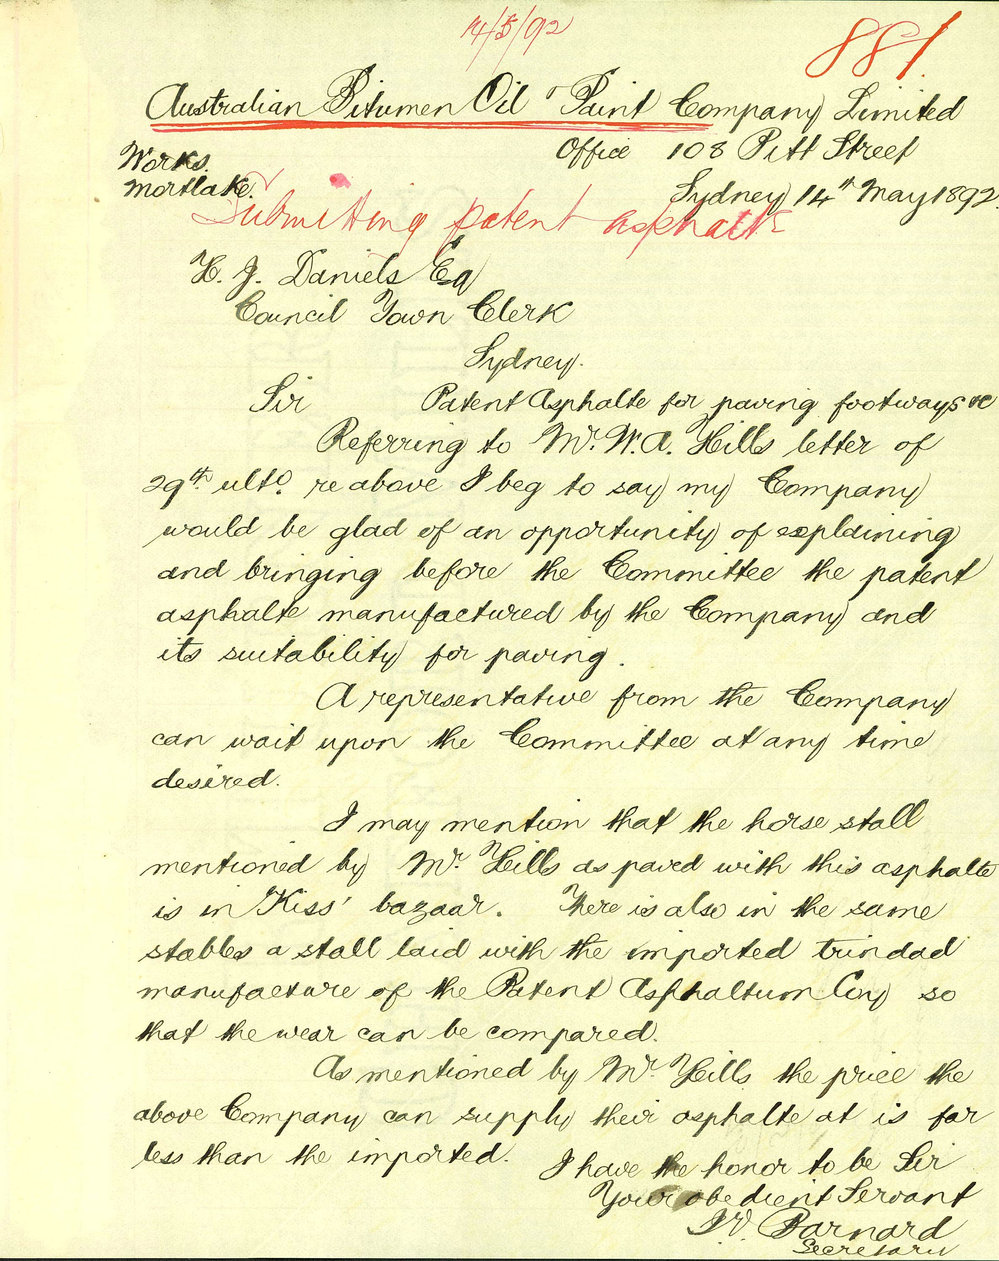 14/5/92
881
Australian Bitumen Oil & Paint Company Limited
Works
Mortlake
Office 108 Pitt Street
Sydney 14th May 1892
Submitting patent asphalte
H. J. Daniels Esq
Council Town Clerk
Sydney.
Sir Patent Asphalte for paving footways &c
Referring to Mr. W. A. Hills letter of
29th ulto. re above I beg to say my Company
would be glad of an opportunity of explaining
and bringing before the Committee the patent
asphalte manufactured by the Company and
its suitability for paving.
A representative from the Company
can wait upon the Committee at any time
desired.
I may mention that the horse stall
mentioned by Mr. Hills as paved with this asphalte
is in Kiss' bazaar. There is also in the same
stables a stall laid with the imported trindad
manufacture of the Patent Asphaltum Coy so
that the wear can be compared.
As mentioned by Mr. Hills the price the
above Company can supply their asphalte at is far
less than the imported.
I have the honor to be Sir
Your obedient Servant
Barnard
Secretary